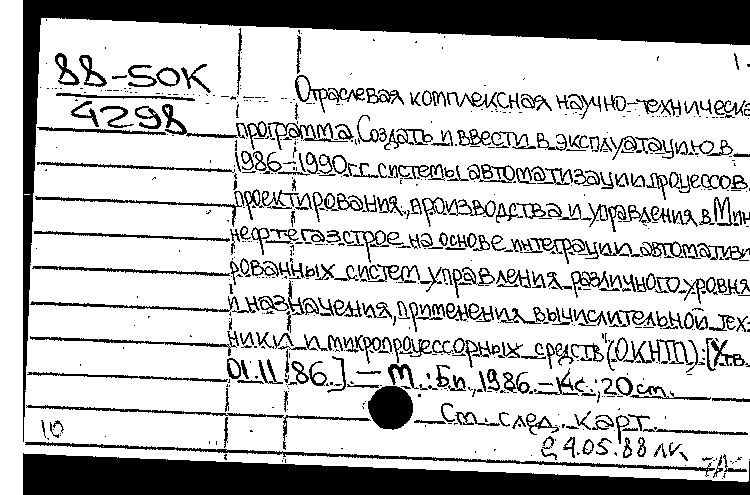 88-50К
4298
Отраслевая комплексная научно-техническа
программа „Создать и ввести в эксплуатацию в
1986-1990гг. системы автоматизации процессов
проектирования, производства и управления в Мин
нефтегазстрое на основе интеграции автоматизи
рованных систем управления различного уровня
и назначения, применения вычислительной тех
ники и микропроцессорных средств" (ОКНТП): [Утв.
01.11.86.]. — М.: Б.и., 1986. — 14с.; 20 см.
См. след. карт.
24.05.88 ЛК
10